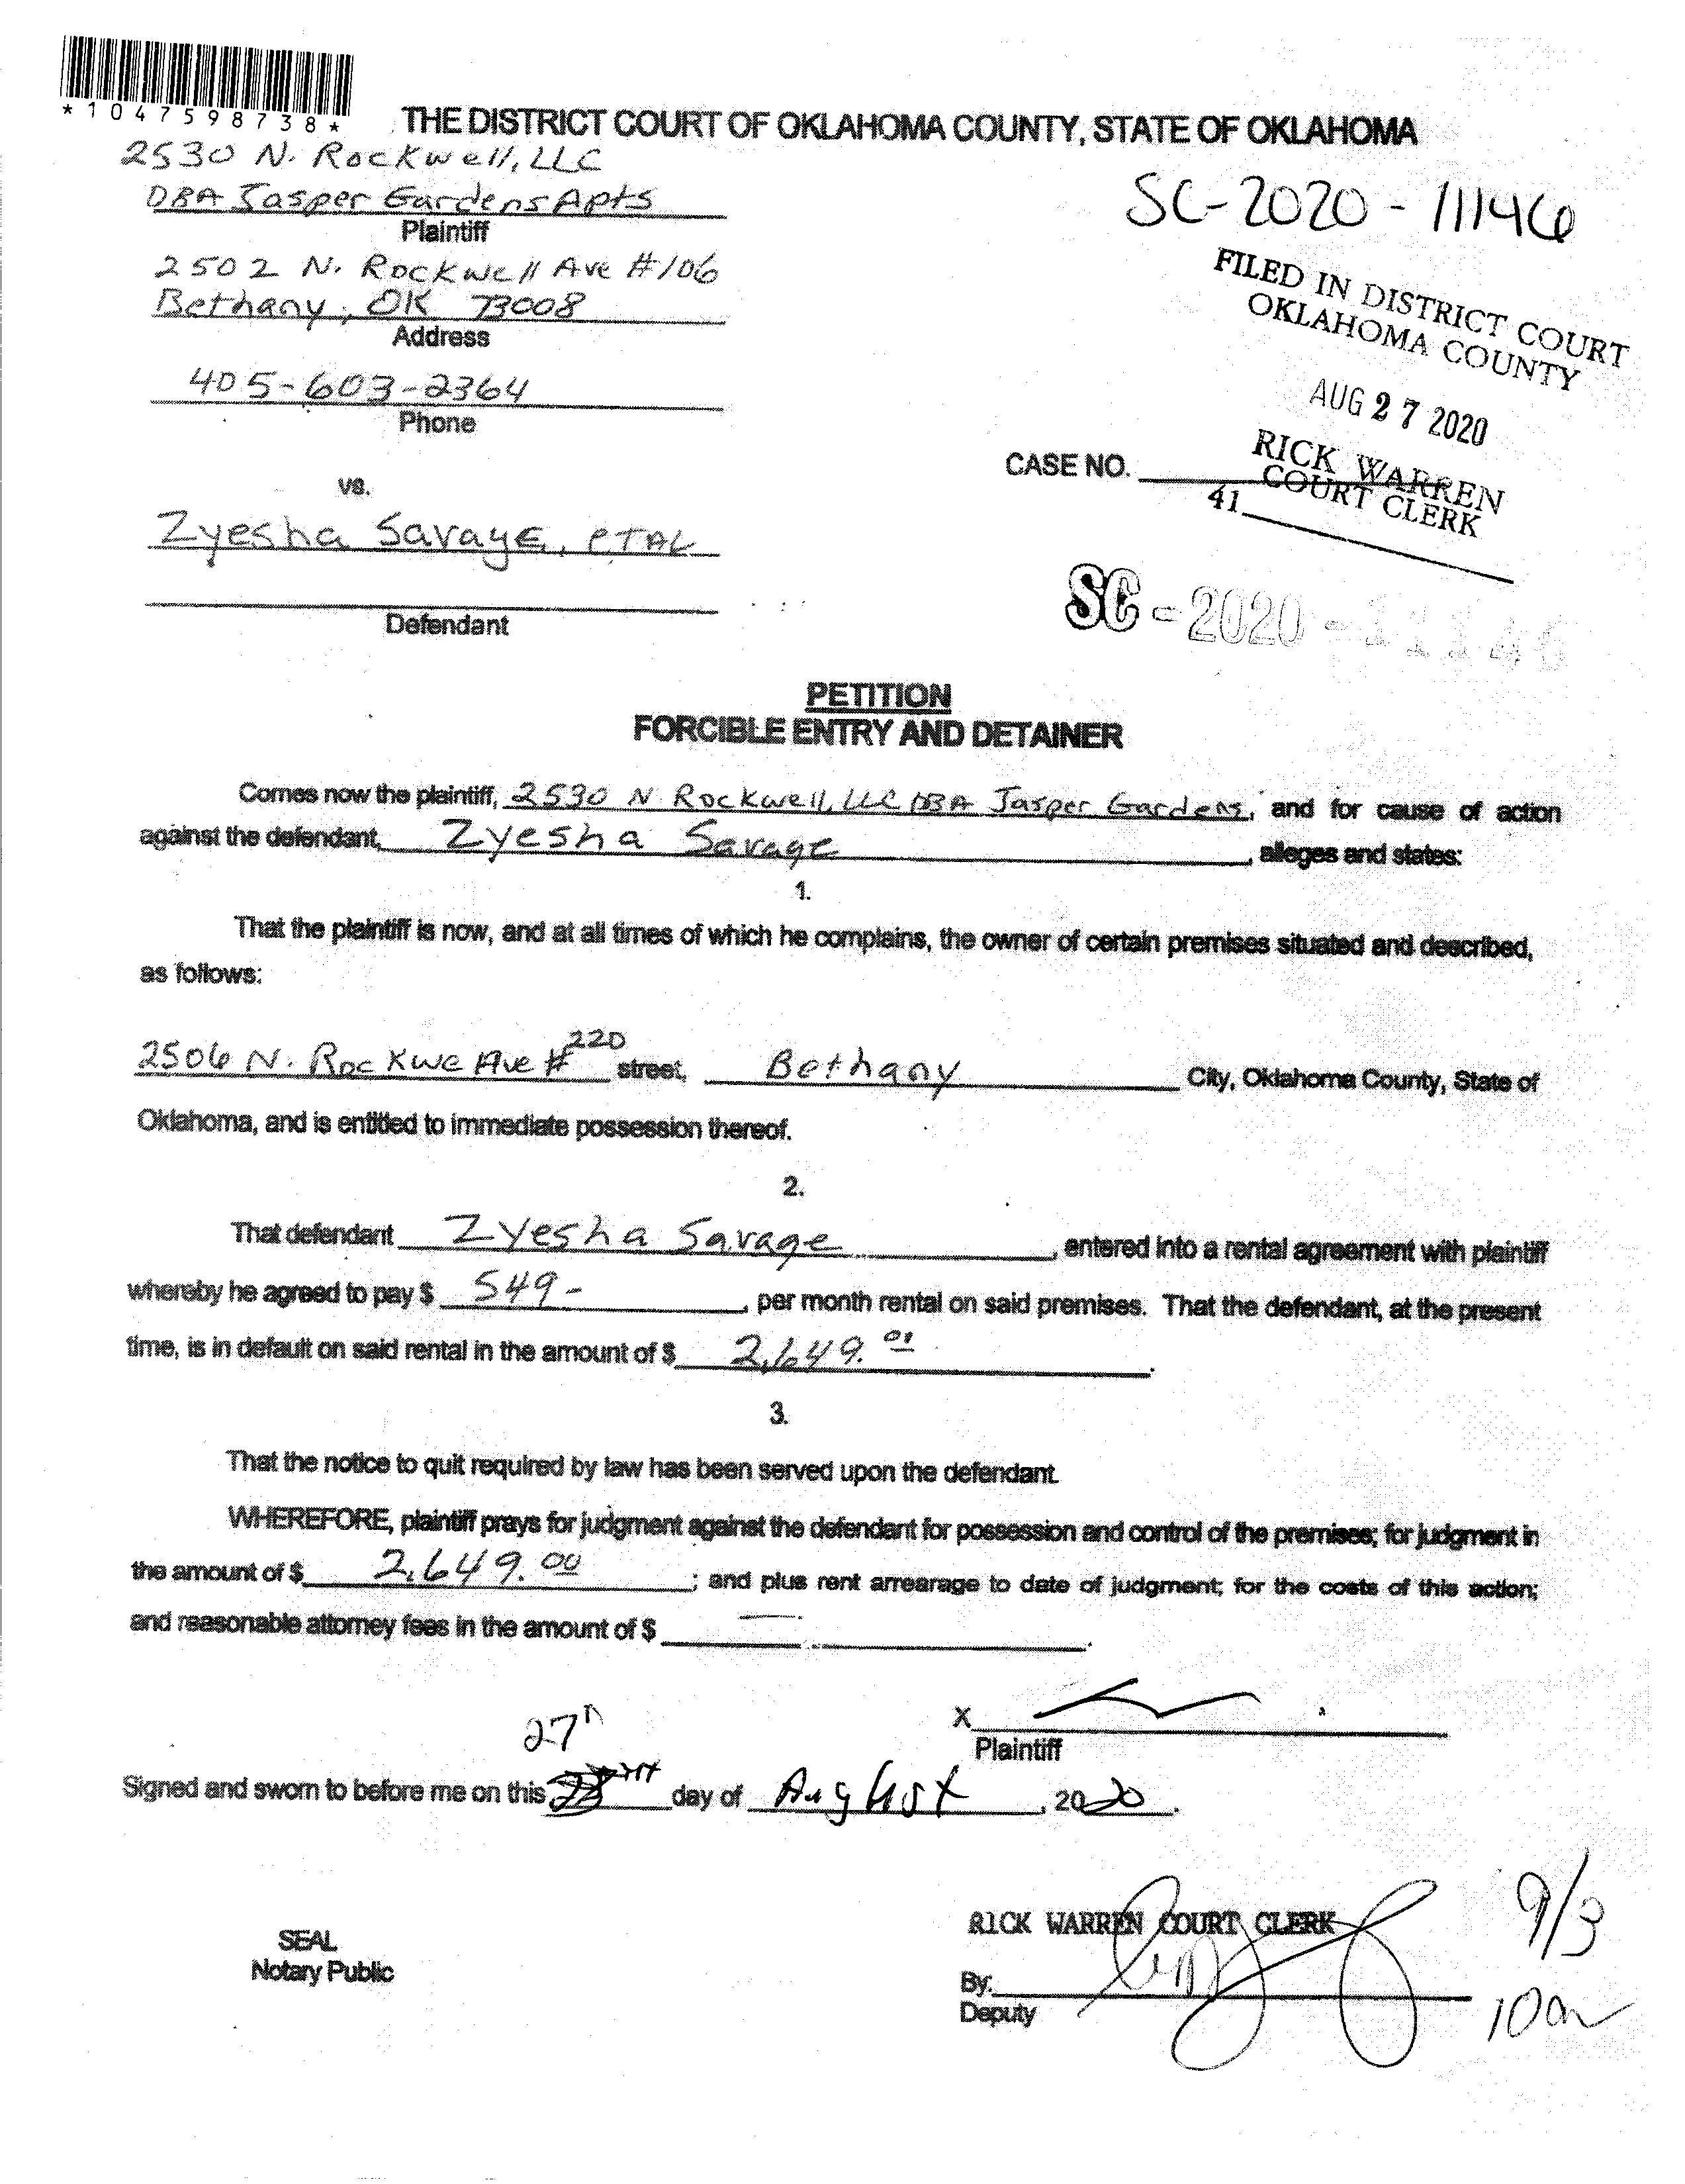 *1047598738*
THE DISTRICT COURT OF OKLAHOMA COUNTY, STATE OF OKLAHOMA
2530 N. Rockwell, LLC
DBA Jasper Gardens Apts
Plaintiff
2502 N. Rockwell Ave #106
Bethany, OK 73008
Address
405-603-2364
Phone
SC-2020-11146
FILED IN DISTRICT COURT
OKLAHOMA COUNTY
AUG 27 2020
RICK WARREN
COURT CLERK
41
CASE NO.
vs.
Zyesha Savage, ETAL
Defendant
SC-2020-11146
PETITION
FORCIBLE ENTRY AND DETAINER
Comes now the plaintiff, 2530 N. Rockwell, LLC DBA Jasper Gardens, and for cause of action
against the defendant, Zyesha Savage, alleges and states:
1.
That the plaintiff is now, and at all times of which he complains, the owner of certain premises situated and described,
as follows:
2506 N. Rockwe Ave #220 street, Bethany City, Oklahoma County, State of
Oklahoma, and is entitled to immediate possession thereof.
2.
That defendant Zyesha Savage, entered into a rental agreement with plaintiff
whereby he agreed to pay $ 549-, per month rental on said premises. That the defendant, at the present
time, is in default on said rental in the amount of $ 2,649.
3.
That the notice to quit required by law has been served upon the defendant.
WHEREFORE, plaintiff prays for judgment against the defendant for possession and control of the premises; for judgment in
the amount of $ 2,649.00; and plus rent arrearage to date of judgment; for the costs of this action;
and reasonable attorney fees in the amount of $ —.
X
Plaintiff
27
Signed and sworn to before me on this day of August, 2020.
SEAL
Notary Public
RICK WARREN COURT CLERK
By:
Deputy
9/3
10am